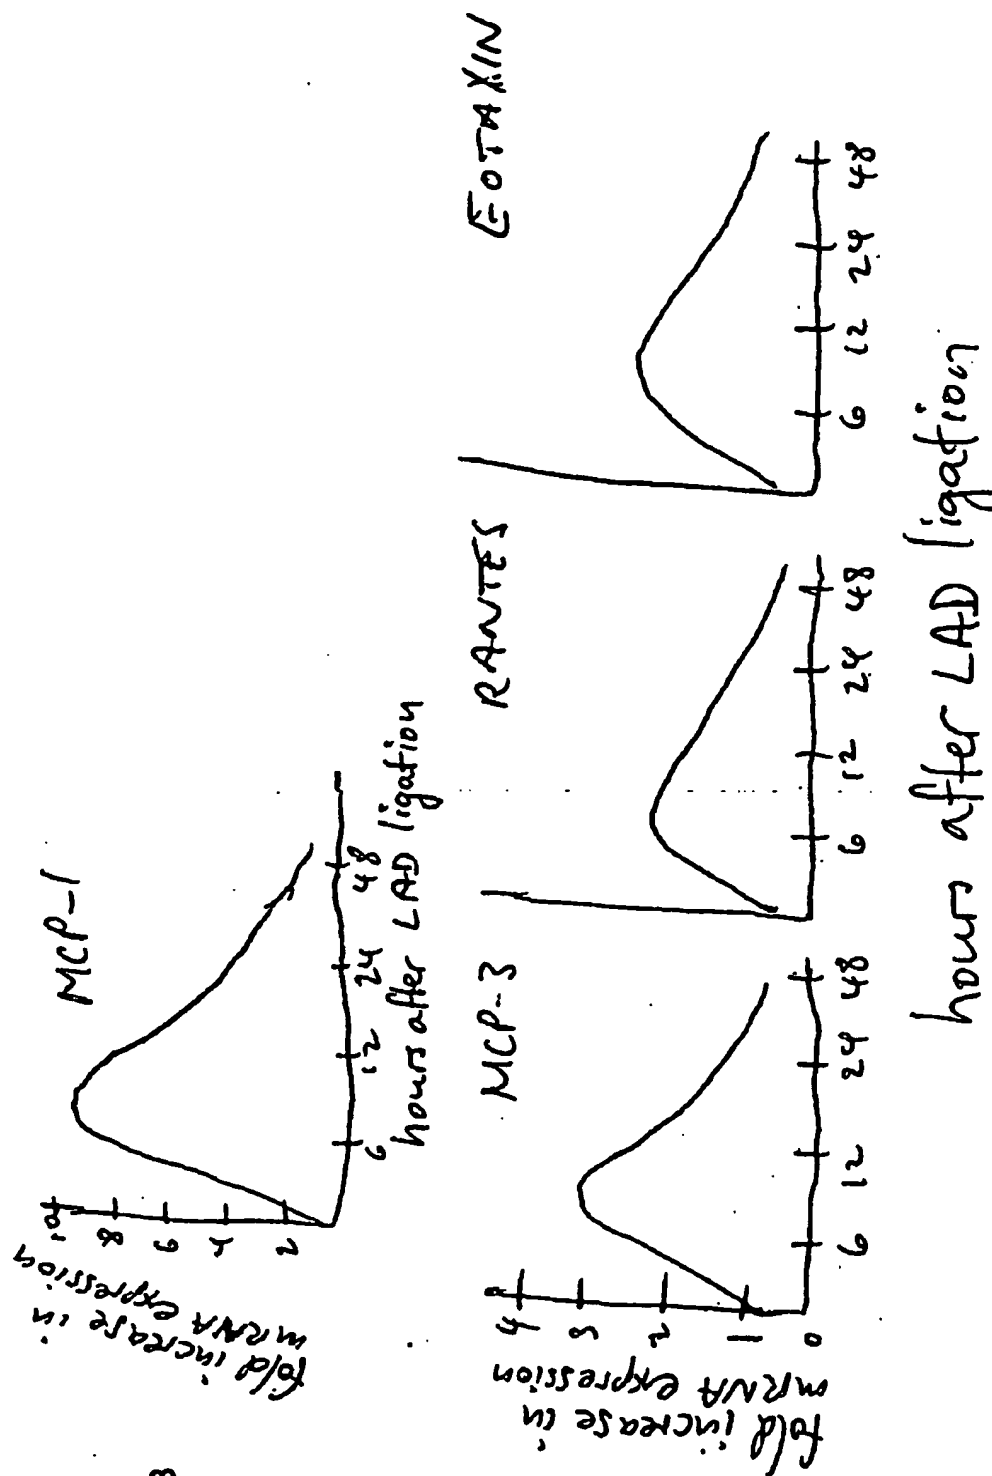 MCP-1
fold increase in
mRNA expression
10
8
6
4
2
6 12 24 48
hours after LAD ligation
MCP-3
RANTES
EOTAXIN
fold increase in
mRNA expression
4
3
2
1
0
6 12 24 48
6 12 24 48
6 12 24 48
hours after LAD ligation